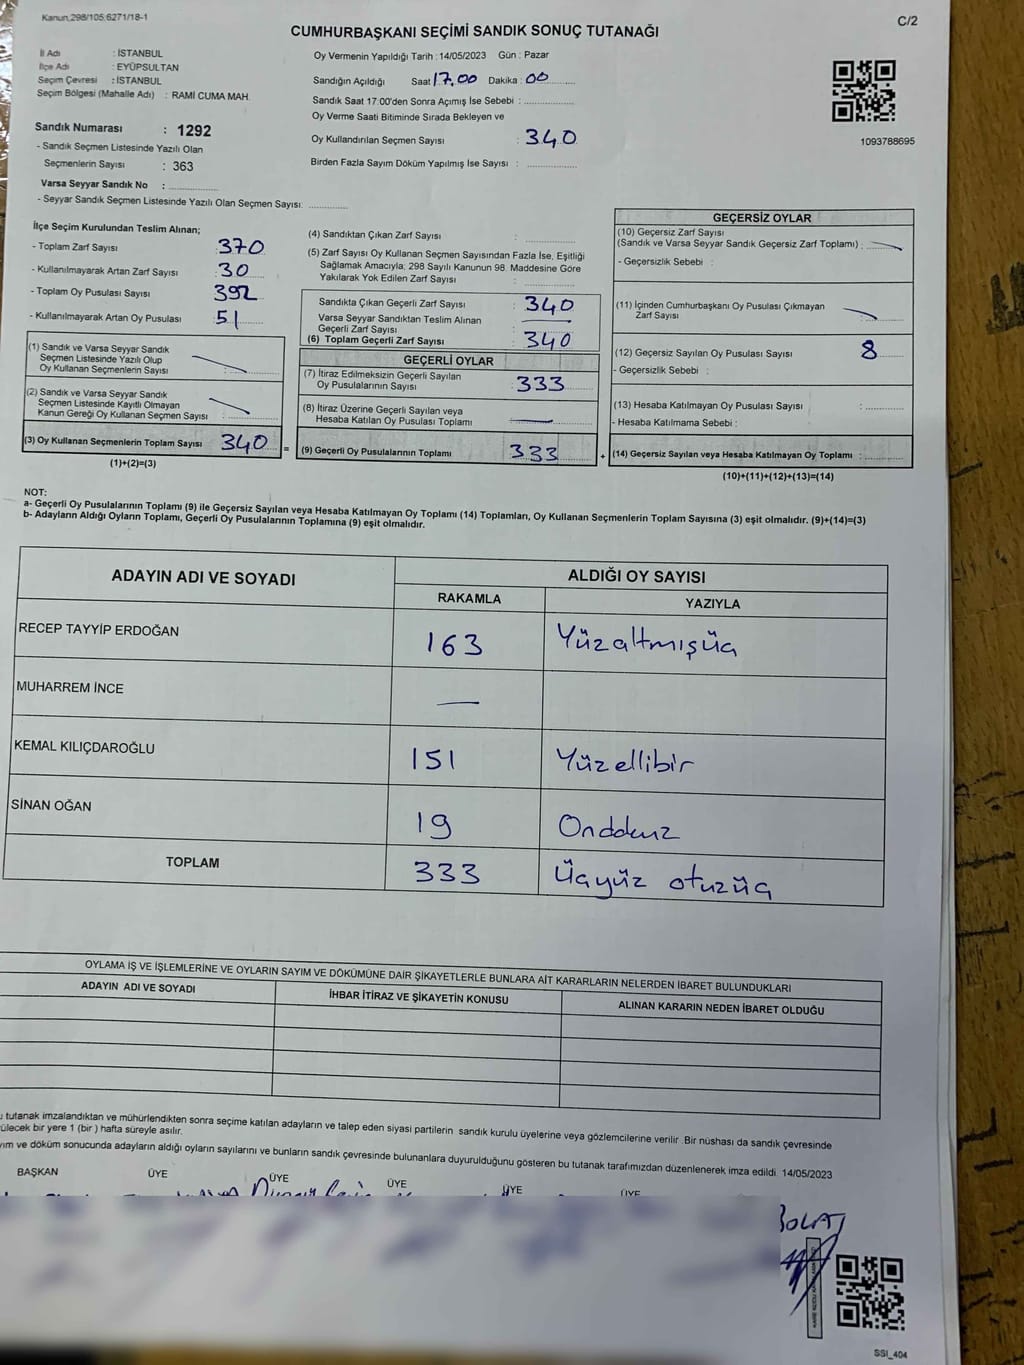 Kanun,298/105;6271/18-1
C/2
CUMHURBAŞKANI SEÇİMİ SANDIK SONUÇ TUTANAĞI
İl Adı : İSTANBUL
İlçe Adı : EYÜPSULTAN
Seçim Çevresi : İSTANBUL
Seçim Bölgesi (Mahalle Adı) : RAMİ CUMA MAH.
Sandık Numarası : 1292
- Sandık Seçmen Listesinde Yazılı Olan
Seçmenlerin Sayısı : 363
Varsa Seyyar Sandık No :
- Seyyar Sandık Seçmen Listesinde Yazılı Olan Seçmen Sayısı:
Oy Vermenin Yapıldığı Tarih : 14/05/2023 Gün : Pazar
Sandığın Açıldığı Saat 17,00 Dakika : 00
Sandık Saat 17:00'den Sonra Açımış İse Sebebi :
Oy Verme Saati Bitiminde Sırada Bekleyen ve
Oy Kullandırılan Seçmen Sayısı : 340
Birden Fazla Sayım Döküm Yapılmış İse Sayısı :
1093788695
İlçe Seçim Kurulundan Teslim Alınan;
- Toplam Zarf Sayısı : 370
- Kullanılmayarak Artan Zarf Sayısı : 30
- Toplam Oy Pusulası Sayısı : 392
- Kullanılmayarak Artan Oy Pusulası : 51
(1) Sandık ve Varsa Seyyar Sandık
Seçmen Listesinde Yazılı Olup
Oy Kullanan Seçmenlerin Sayısı :
(2) Sandık ve Varsa Seyyar Sandık
Seçmen Listesinde Kayıtlı Olmayan
Kanun Gereği Oy Kullanan Seçmen Sayısı :
(3) Oy Kullanan Seçmenlerin Toplam Sayısı : 340 =
(1)+(2)=(3)
(4) Sandıktan Çıkan Zarf Sayısı :
(5) Zarf Sayısı Oy Kullanan Seçmen Sayısından Fazla İse, Eşitliği
Sağlamak Amacıyla; 298 Sayılı Kanunun 98. Maddesine Göre
Yakılarak Yok Edilen Zarf Sayısı :
Sandıkta Çıkan Geçerli Zarf Sayısı : 340
Varsa Seyyar Sandıktan Teslim Alınan
Geçerli Zarf Sayısı :
(6) Toplam Geçerli Zarf Sayısı : 340
GEÇERLİ OYLAR
(7) İtiraz Edilmeksizin Geçerli Sayılan
Oy Pusulalarının Sayısı : 333
(8) İtiraz Üzerine Geçerli Sayılan veya
Hesaba Katılan Oy Pusulası Toplamı :
(9) Geçerli Oy Pusulalarının Toplamı : 333 +
GEÇERSİZ OYLAR
(10) Geçersiz Zarf Sayısı
(Sandık ve Varsa Seyyar Sandık Geçersiz Zarf Toplamı) :
- Geçersizlik Sebebi :
(11) İçinden Cumhurbaşkanı Oy Pusulası Çıkmayan
Zarf Sayısı :
(12) Geçersiz Sayılan Oy Pusulası Sayısı : 8
- Geçersizlik Sebebi :
(13) Hesaba Katılmayan Oy Pusulası Sayısı :
- Hesaba Katılmama Sebebi :
(14) Geçersiz Sayılan veya Hesaba Katılmayan Oy Toplamı :
(10)+(11)+(12)+(13)=(14)
NOT:
a- Geçerli Oy Pusulalarının Toplamı (9) ile Geçersiz Sayılan veya Hesaba Katılmayan Oy Toplamı (14) Toplamları, Oy Kullanan Seçmenlerin Toplam Sayısına (3) eşit olmalıdır. (9)+(14)=(3)
b- Adayların Aldığı Oyların Toplamı, Geçerli Oy Pusulalarının Toplamına (9) eşit olmalıdır.
ADAYIN ADI VE SOYADI ALDIĞI OY SAYISI
RAKAMLA YAZIYLA
RECEP TAYYİP ERDOĞAN 163 Yüzaltmışüç
MUHARREM İNCE —
KEMAL KILIÇDAROĞLU 151 Yüzellibir
SİNAN OĞAN 19
TOPLAM 333 Üçyüz otuzüç
OYLAMA İŞ VE İŞLEMLERİNE VE OYLARIN SAYIM VE DÖKÜMÜNE DAİR ŞİKAYETLERLE BUNLARA AİT KARARLARIN NELERDEN İBARET BULUNDUKLARI
ADAYIN ADI VE SOYADI İHBAR İTİRAZ VE ŞİKAYETİN KONUSU ALINAN KARARIN NEDEN İBARET OLDUĞU
tutanak imzalandıktan ve mühürlendikten sonra seçime katılan adayların ve talep eden siyasi partilerin sandık kurulu üyelerine veya gözlemcilerine verilir. Bir nüshası da sandık çevresinde
ülecek bir yere 1 (bir) hafta süreyle asılır.
yım ve döküm sonucunda adayların aldığı oyların sayılarını ve bunların sandık çevresinde bulunanlara duyurulduğunu gösteren bu tutanak tarafımızdan düzenlenerek imza edildi. 14/05/2023
BAŞKAN ÜYE ÜYE ÜYE ÜYE ÜYE
BOLAT
SSI_404